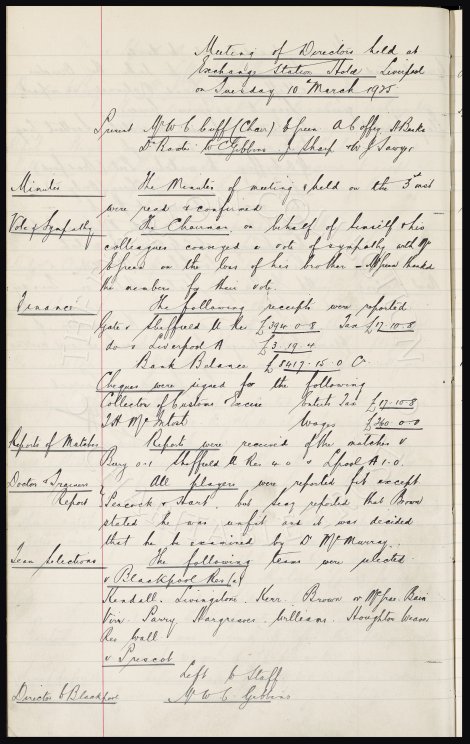 Meeting of Directors held at
Exchange Station Hotel Liverpool
on Tuesday 10 March 1925
Present Mr W C Cuff (Chair) E Green A Coffey H Banks
Dr Baxter W C Gibbins J Sharp & W J Sawyer
Minutes The Minutes of meeting held on the 3rd inst
were read & confirmed
Vote of Sympathy The Chairman on behalf of himself & his
colleagues conveyed a vote of sympathy with Mr
E Green on the loss of his brother - Mr Green thanked
the members for their vote.
Finance The following receipts were reported
Gate v Sheffield U Res £394.0.8 Tax £17.10.8
do v Liverpool A £3.19.4
Bank Balance £8417.15.0 Cr
Cheques were signed for the following
Collector of Customs Excise Enterts Tax £17.10.8
T H McIntosh Wages £360.0.0
Reports of Matches Reports were received of the matches v
Bury 0-1 Sheffield U Res 4.0 v Lpool A 1.0.
Doctor & Trainers Report All players were reported fit except
Peacock & Hart but seeing reported that Brown
stated he was unfit and it was decided
that he be examined by Dr McMurray.
Team Selections The following teams were selected
v Blackpool Res
Kendall. Livingstone. Kerr. Brown or McGrae. Bain
Virr. Parry Hargreaves. Williams. Houghton Weaver
Res Wall
v Prescot
Left to Staff
Director to Blackpool Mr W C Gibbins